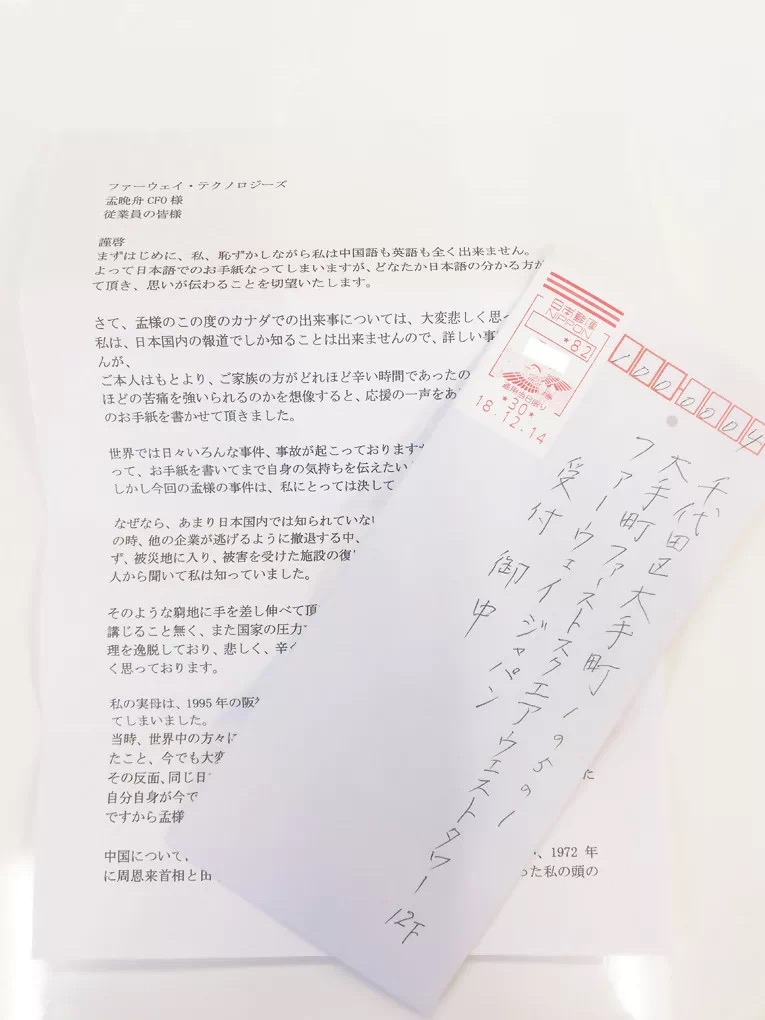 ファーウェイ・テクノロジーズ
孟晩舟 CFO 様
従業員の皆様
謹啓
まずはじめに、私、恥ずかしながら私は中国語も英語も全く出来ません。
よって日本語でのお手紙なってしまいますが、どなたか日本語の分かる方が
て頂き、思いが伝わることを切望いたします。
さて、孟様のこの度のカナダでの出来事については、大変悲しく思
私は、日本国内の報道でしか知ることは出来ませんので、詳しい事
んが、
ご本人はもとより、ご家族の方がどれほど辛い時間であったの
ほどの苦痛を強いられるのかを想像すると、応援の一声をあ
のお手紙を書かせて頂きました。
世界では日々いろんな事件、事故が起こっております
って、お手紙を書いてまで自身の気持ちを伝えたい
しかし今回の孟様の事件は、私にとっては決して
なぜなら、あまり日本国内では知られていない
の時、他の企業が逃げるように撤退する中、
ず、被災地に入り、被害を受けた施設の復
人から聞いて私は知っていました。
そのような窮地に手を差し伸べて頂
講じること無く、また国家の圧力
理を逸脱しており、悲しく、辛く
く思っております。
私の実母は、1995 年の阪
てしまいました。
当時、世界中の方々に
たこと、今でも大変
その反面、同じ日
に
自分自身が今で
ですから孟様
中国について、
、1972 年
に周恩来首相と田
った私の頭の
日本郵便
NIPPON
*82
*30*
18.12.14
1000004
千代田区大手町 1951
大手町ファーストスクエアウエストタワー 12F
ファーウェイジャパン
受付 御中